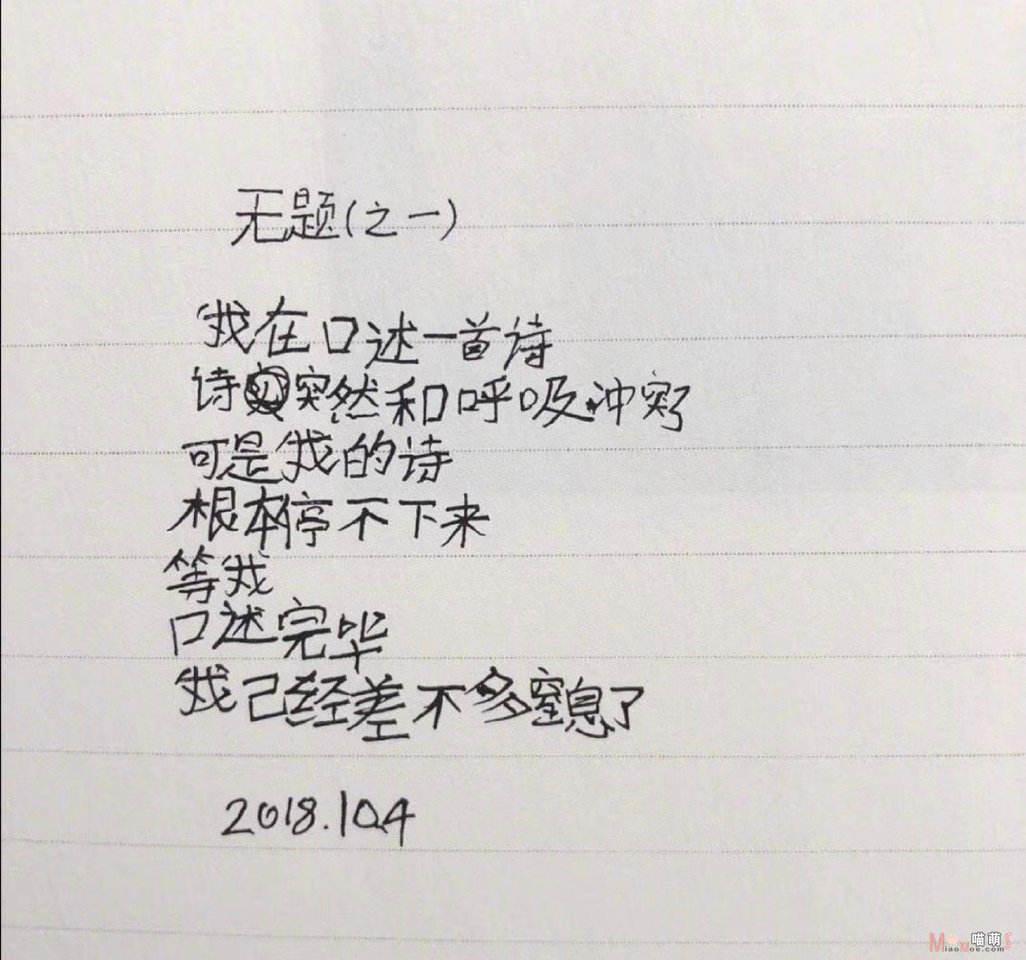 无题(之一)
我在口述一首诗
诗突然和呼吸冲突了
可是我的诗
根本停不下来
等我
口述完毕
我已经差不多窒息了
2018.10.4
喵萌
MiaoMoe.com